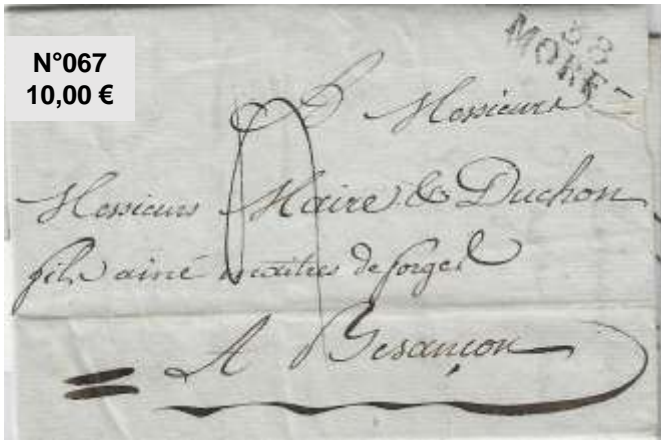 N°067
10,00 €
38
MORE
Messieurs
Messieurs Maire & Duchon
fils ainé maitres de forges
A Besançon